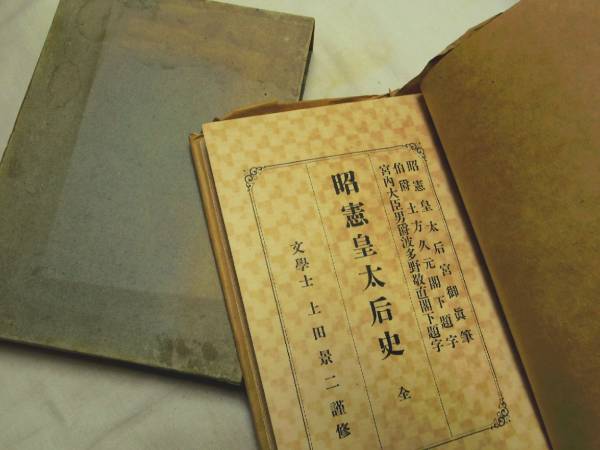 昭憲皇太后宮御眞筆
伯爵土方久元閣下題字
宮內大臣男爵波多野敬直閣下題字
昭憲皇太后史 全
文學士 上田景二 謹修